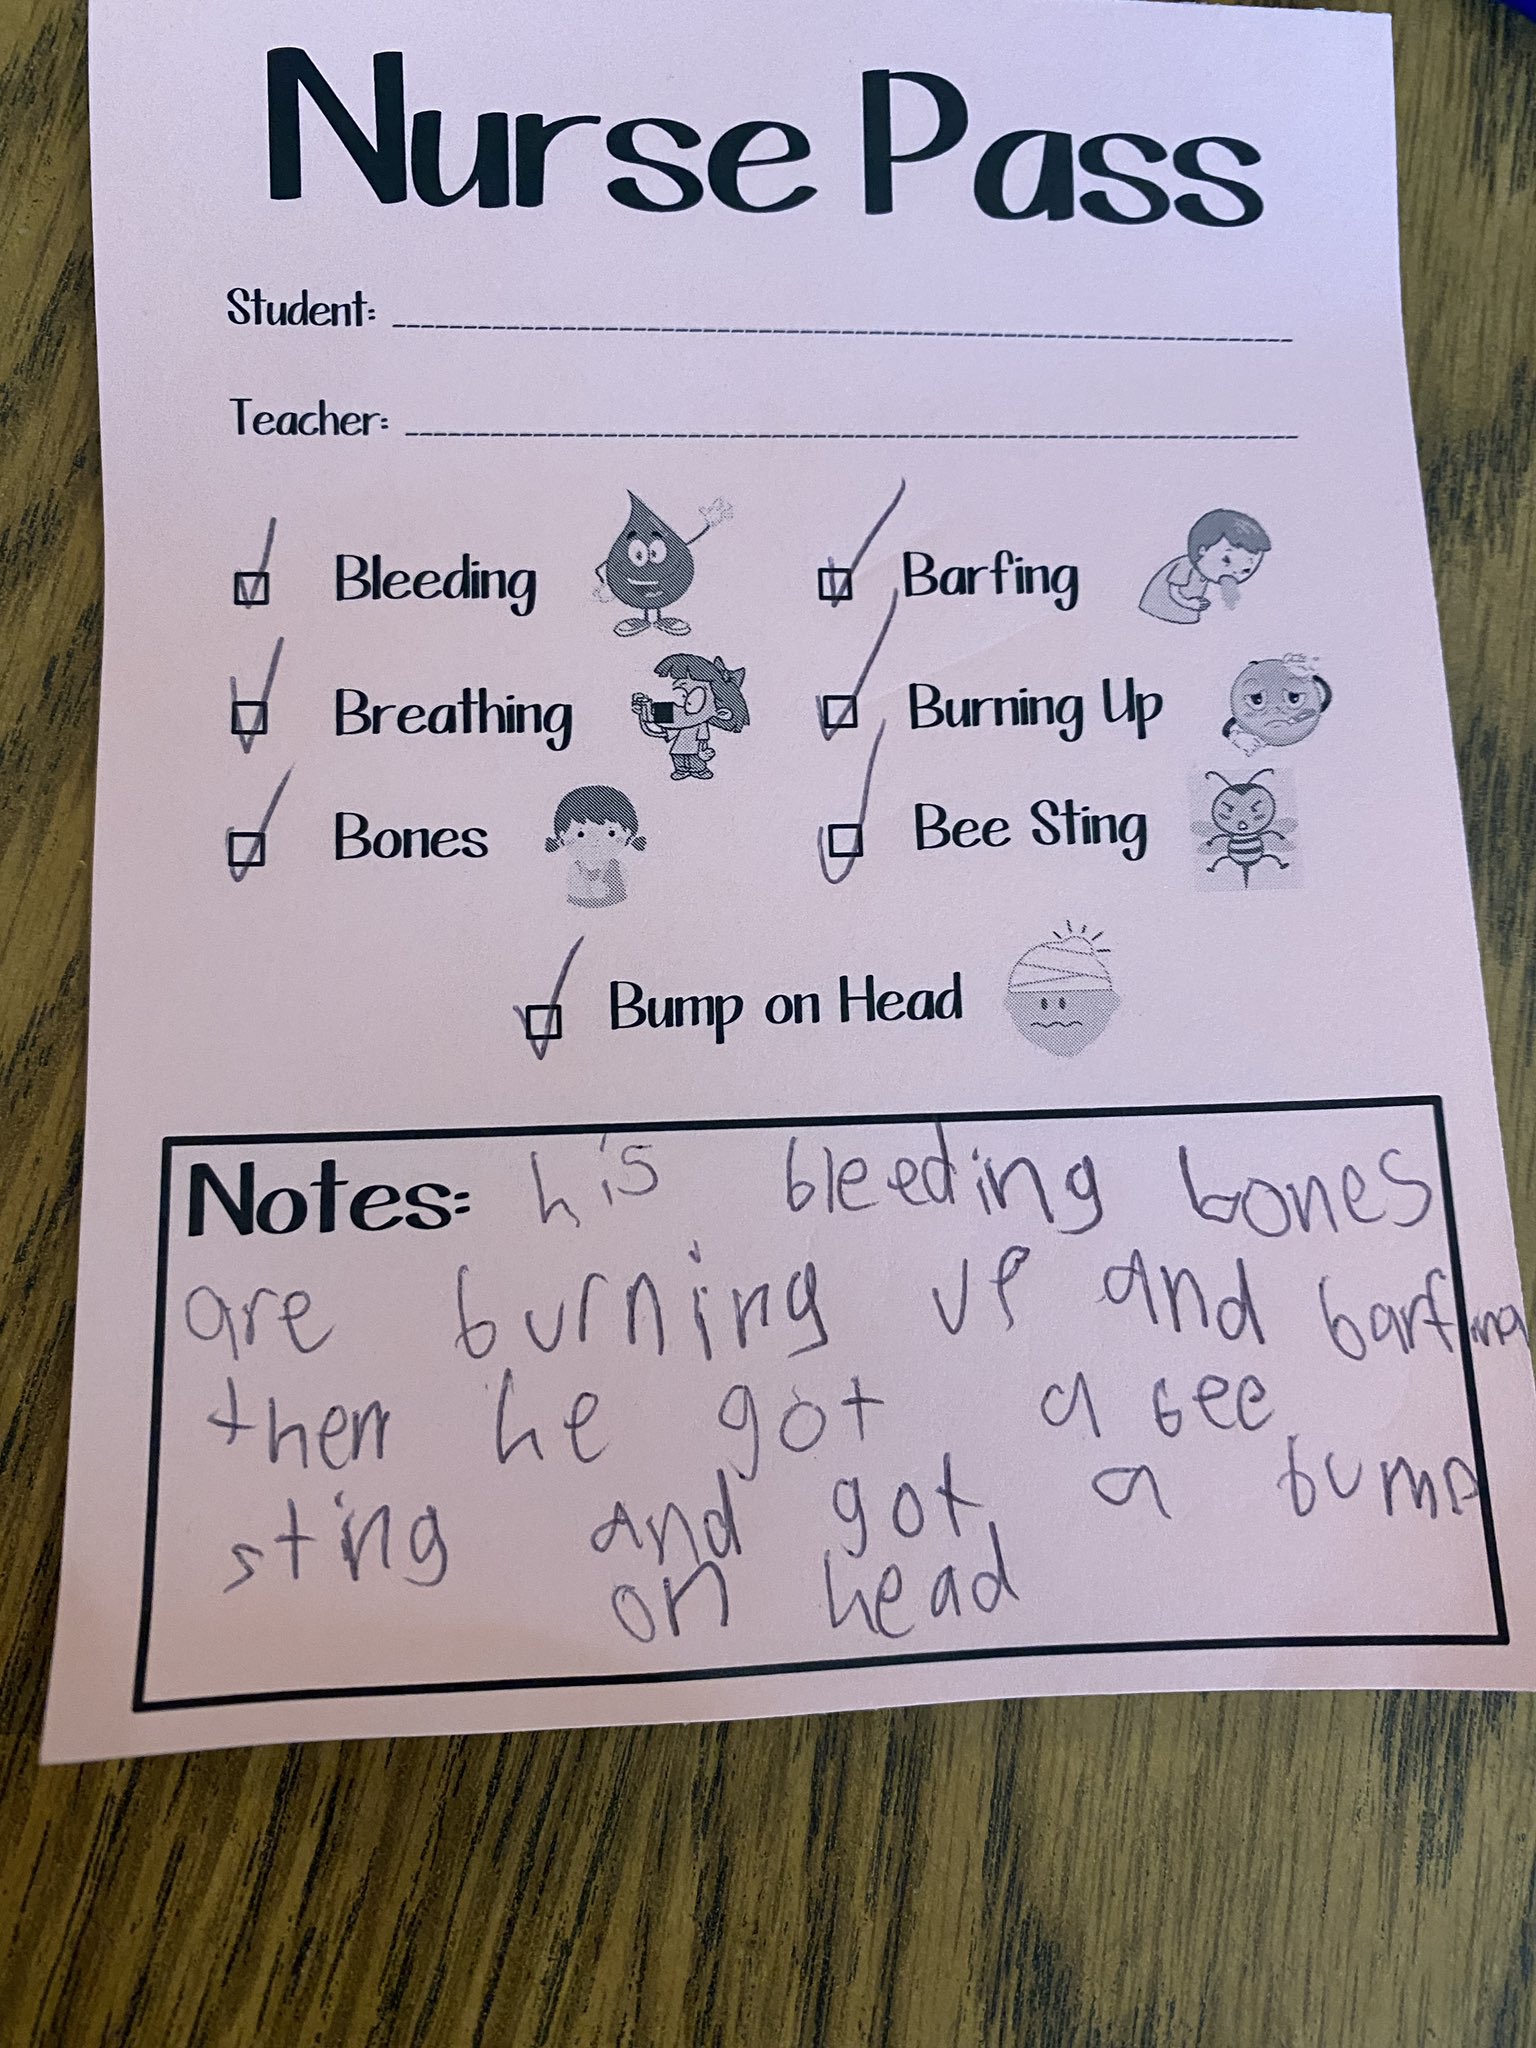 Nurse Pass
Student:
Teacher:
Bleeding
Barfing
Breathing
Burning Up
Bones
Bee Sting
Bump on Head
Notes: his bleeding bones
are burning up and barfing
then he got a bee
sting and got a bump
on head